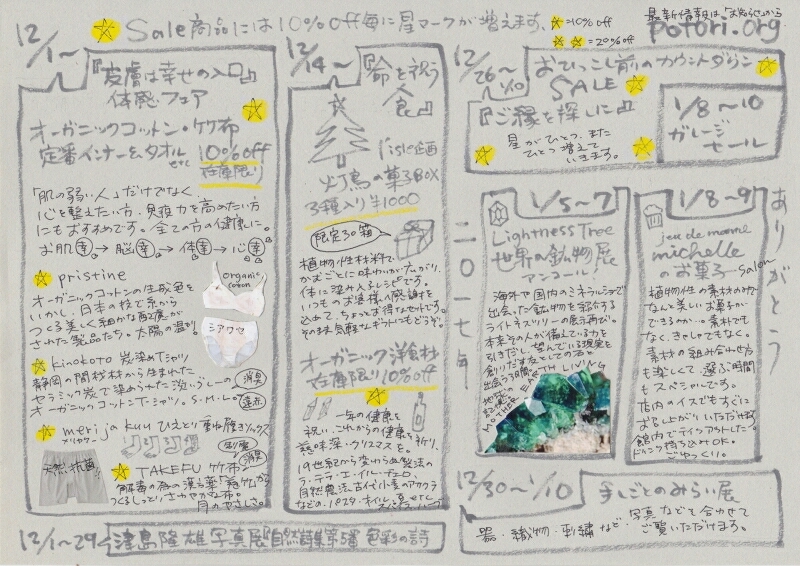 12/1〜
Sale商品には10%off毎に星マークが増えます。
☆=10%off
☆☆=20%off
最新情報は「お知らせ」から
potori.org
『皮膚は幸せの入口』
体感フェア
オーガニックコットン・竹布
定番インナー&タオル etc 10%off
在庫限り
「肌の弱い人」だけでなく
心を整えたい方、免疫力を高めたい方
にもおすすめです。全ての方の健康に。
お肌幸→脳幸→体幸→心幸
pristine
オーガニックコットンの生成色を
いかし、日本の技で糸から
つくる美しく細かな配慮が
された製品たち。太陽の温もり。
organic
cotton
シアワセ
kinokoto 炭染めTシャツ
静岡の間伐材から生まれた
セラミック炭で染められた淡いグレーの
オーガニックコットンTシャツ。S・M・L。
消臭
遠赤
merijakuu ひえとり重ね履きソックス
メリヤクー
天然抗菌!
制電
消臭
TAKEFU 竹布
解毒の為の漢方薬「竹」から
つくるしっとりさわやかな布。
月のやさしさ。
12/1〜29
津島隆雄写真展『自然詩集第5番 色彩の詩
12/4〜
『命を祝う
食』
l'isle企画
灯鳥の菓子BOX
3種入り¥1000
限定30箱
植物性材料で
かむごとに味わいが広がり、
体に染み入るレシピです。
いつものお客様へ感謝を
込めて、ちょっとお得なセットです。
そのまま気軽なギフトにもどうぞ。
オーガニック洋食材
在庫限り10%off
一年の健康を
祝い、これからの健康を祈り、
滋味深いクリスマスを。
19世紀から変わらぬ製法の
ラ・テラ・エ・イル・チエロ、
自然農法、古代小麦のアサクラ
などの、パスタ・オイル・豆 etc
スパイス・ハーブ
12/26〜1/10
おひっこし前のカウントダウン
SALE
『ご縁を探しに』
星がひとつ、また
ひとつ増えて
いきます。
1/8〜10
ガレージ
セール
二〇一七年
1/5〜7
Lightness Tree
世界の鉱物展
アンコール!
海外や国内のミネラルショーで
出会った鉱物を紹介する
ライトネスツリーの展示再び。
本来その人が備えている力を
引きだし、望んでいる現実を
創りだす友としての石と
出会う3日間。
地球の
記憶。
MOTHER EARTH LIVING
1/8〜9
jeu de manne
michelle
のお菓子salon
植物性の素材のみで
なんと美しいお菓子が
できるんか…。素朴でも
なく、きゃしゃでもなく。
素材の組み合わせ方
も楽しくて、選ぶ時間
もスペシャルです。
店内のイスでもすぐに
お召し上がりいただけます。
館内でテイクアウトした
ドリンク持ち込みOK。
ごゆっくり。
ありがとう
12/30〜1/10
手しごとのみらい展
器・織物・刺繍など、写真なども合わせて
ご覧いただけます。